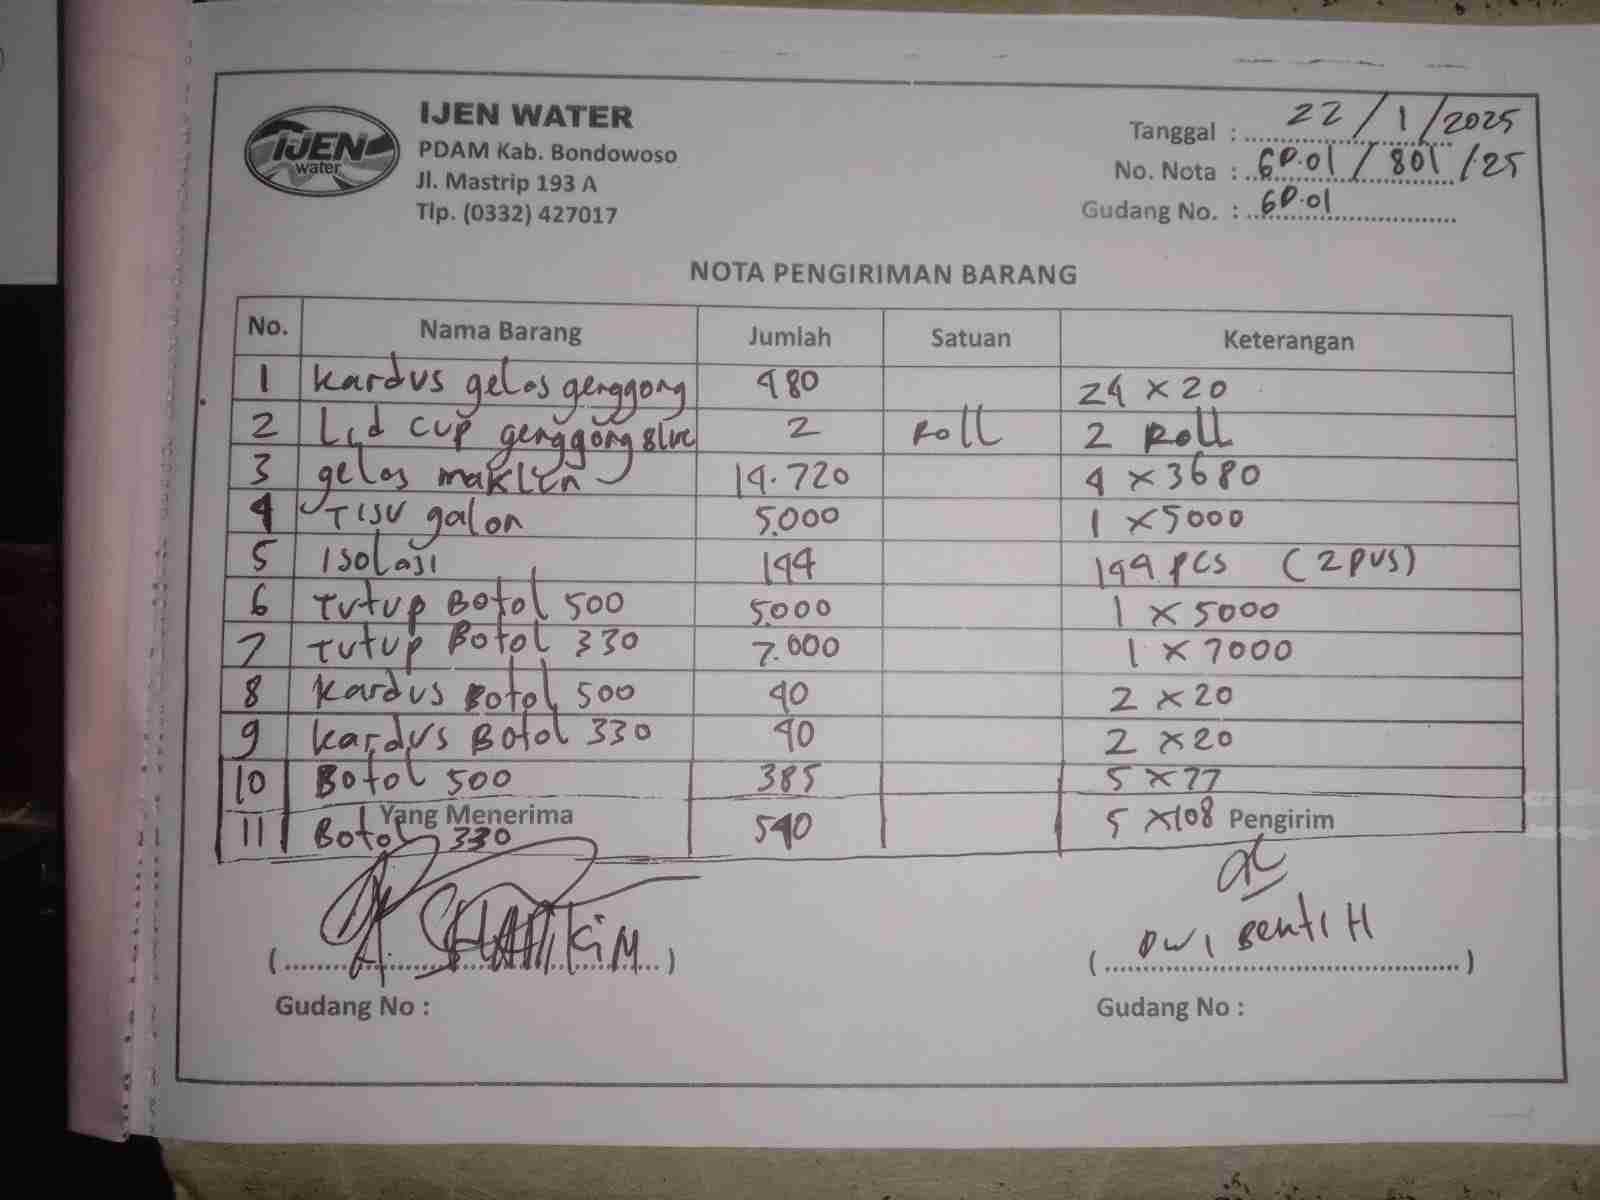 IJEN water
IJEN WATER
PDAM Kab. Bondowoso
Jl. Mastrip 193 A
Tlp. (0332) 427017
Tanggal : 22/1/2025
No. Nota : 60.01/801/25
Gudang No. : 60.01
NOTA PENGIRIMAN BARANG
No. Nama Barang Jumlah Satuan Keterangan
1 Kardus gelas genggong 480 24 x 20
2 Lid cup genggong 2 Roll 2 Roll
3 gelas maklun 14.720 4 x 3680
4 Tisu galon 5.000 1 x 5000
5 Isolasi 144 144 pcs (2 pus)
6 Tutup Botol 500 5.000 1 x 5000
7 Tutup Botol 330 7.000 1 x 7000
8 Kardus Botol 500 40 2 x 20
9 Kardus Botol 330 40 2 x 20
10 Botol 500 385 5 x 77
Yang Menerima Pengirim
11 Botol 330 540 5 x 108
(....................) (Dwi H)
Gudang No : Gudang No :